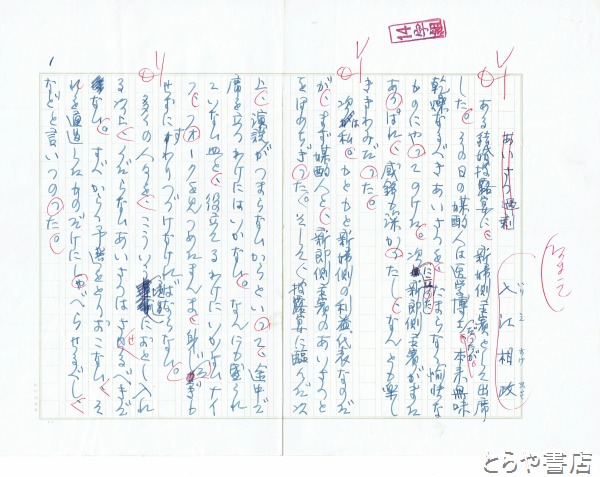 あいさつ過剰
入江相政
いりえすけまさ
ある結婚披露宴に、新婦側主賓として出席
した。その日の媒酌人は医学博士、本来無味
乾燥なるべきあいさつを、たまらなく愉快な
ものにやってのけた。次に立った新郎側主賓がまた
あっぱれ、感銘も深かったし、なんとも楽し
ききわみだった。
次は私。もともと新婦側の利益代表なのだ
が、まず媒酌人と、新郎側主賓のあいさつと
をほめちぎった。そして、披露宴に臨んだ以
上、演説がつまらないからといって、途中で
席を立つわけにはいかない。なんにも盛られ
ていない皿と、役立てるわけにいかないナイ
フ、フォークを見つめたまま、身
せずにすわりつづけなければならない。
多くの人々を、こういう
におとし入れ
る以上、くだらないあいさつはさせるべきで
ない。すべからく予選をとりおこない、そ
れを通過したものだけにしゃべらせるべし、
などと言いつのった。
とらや書店